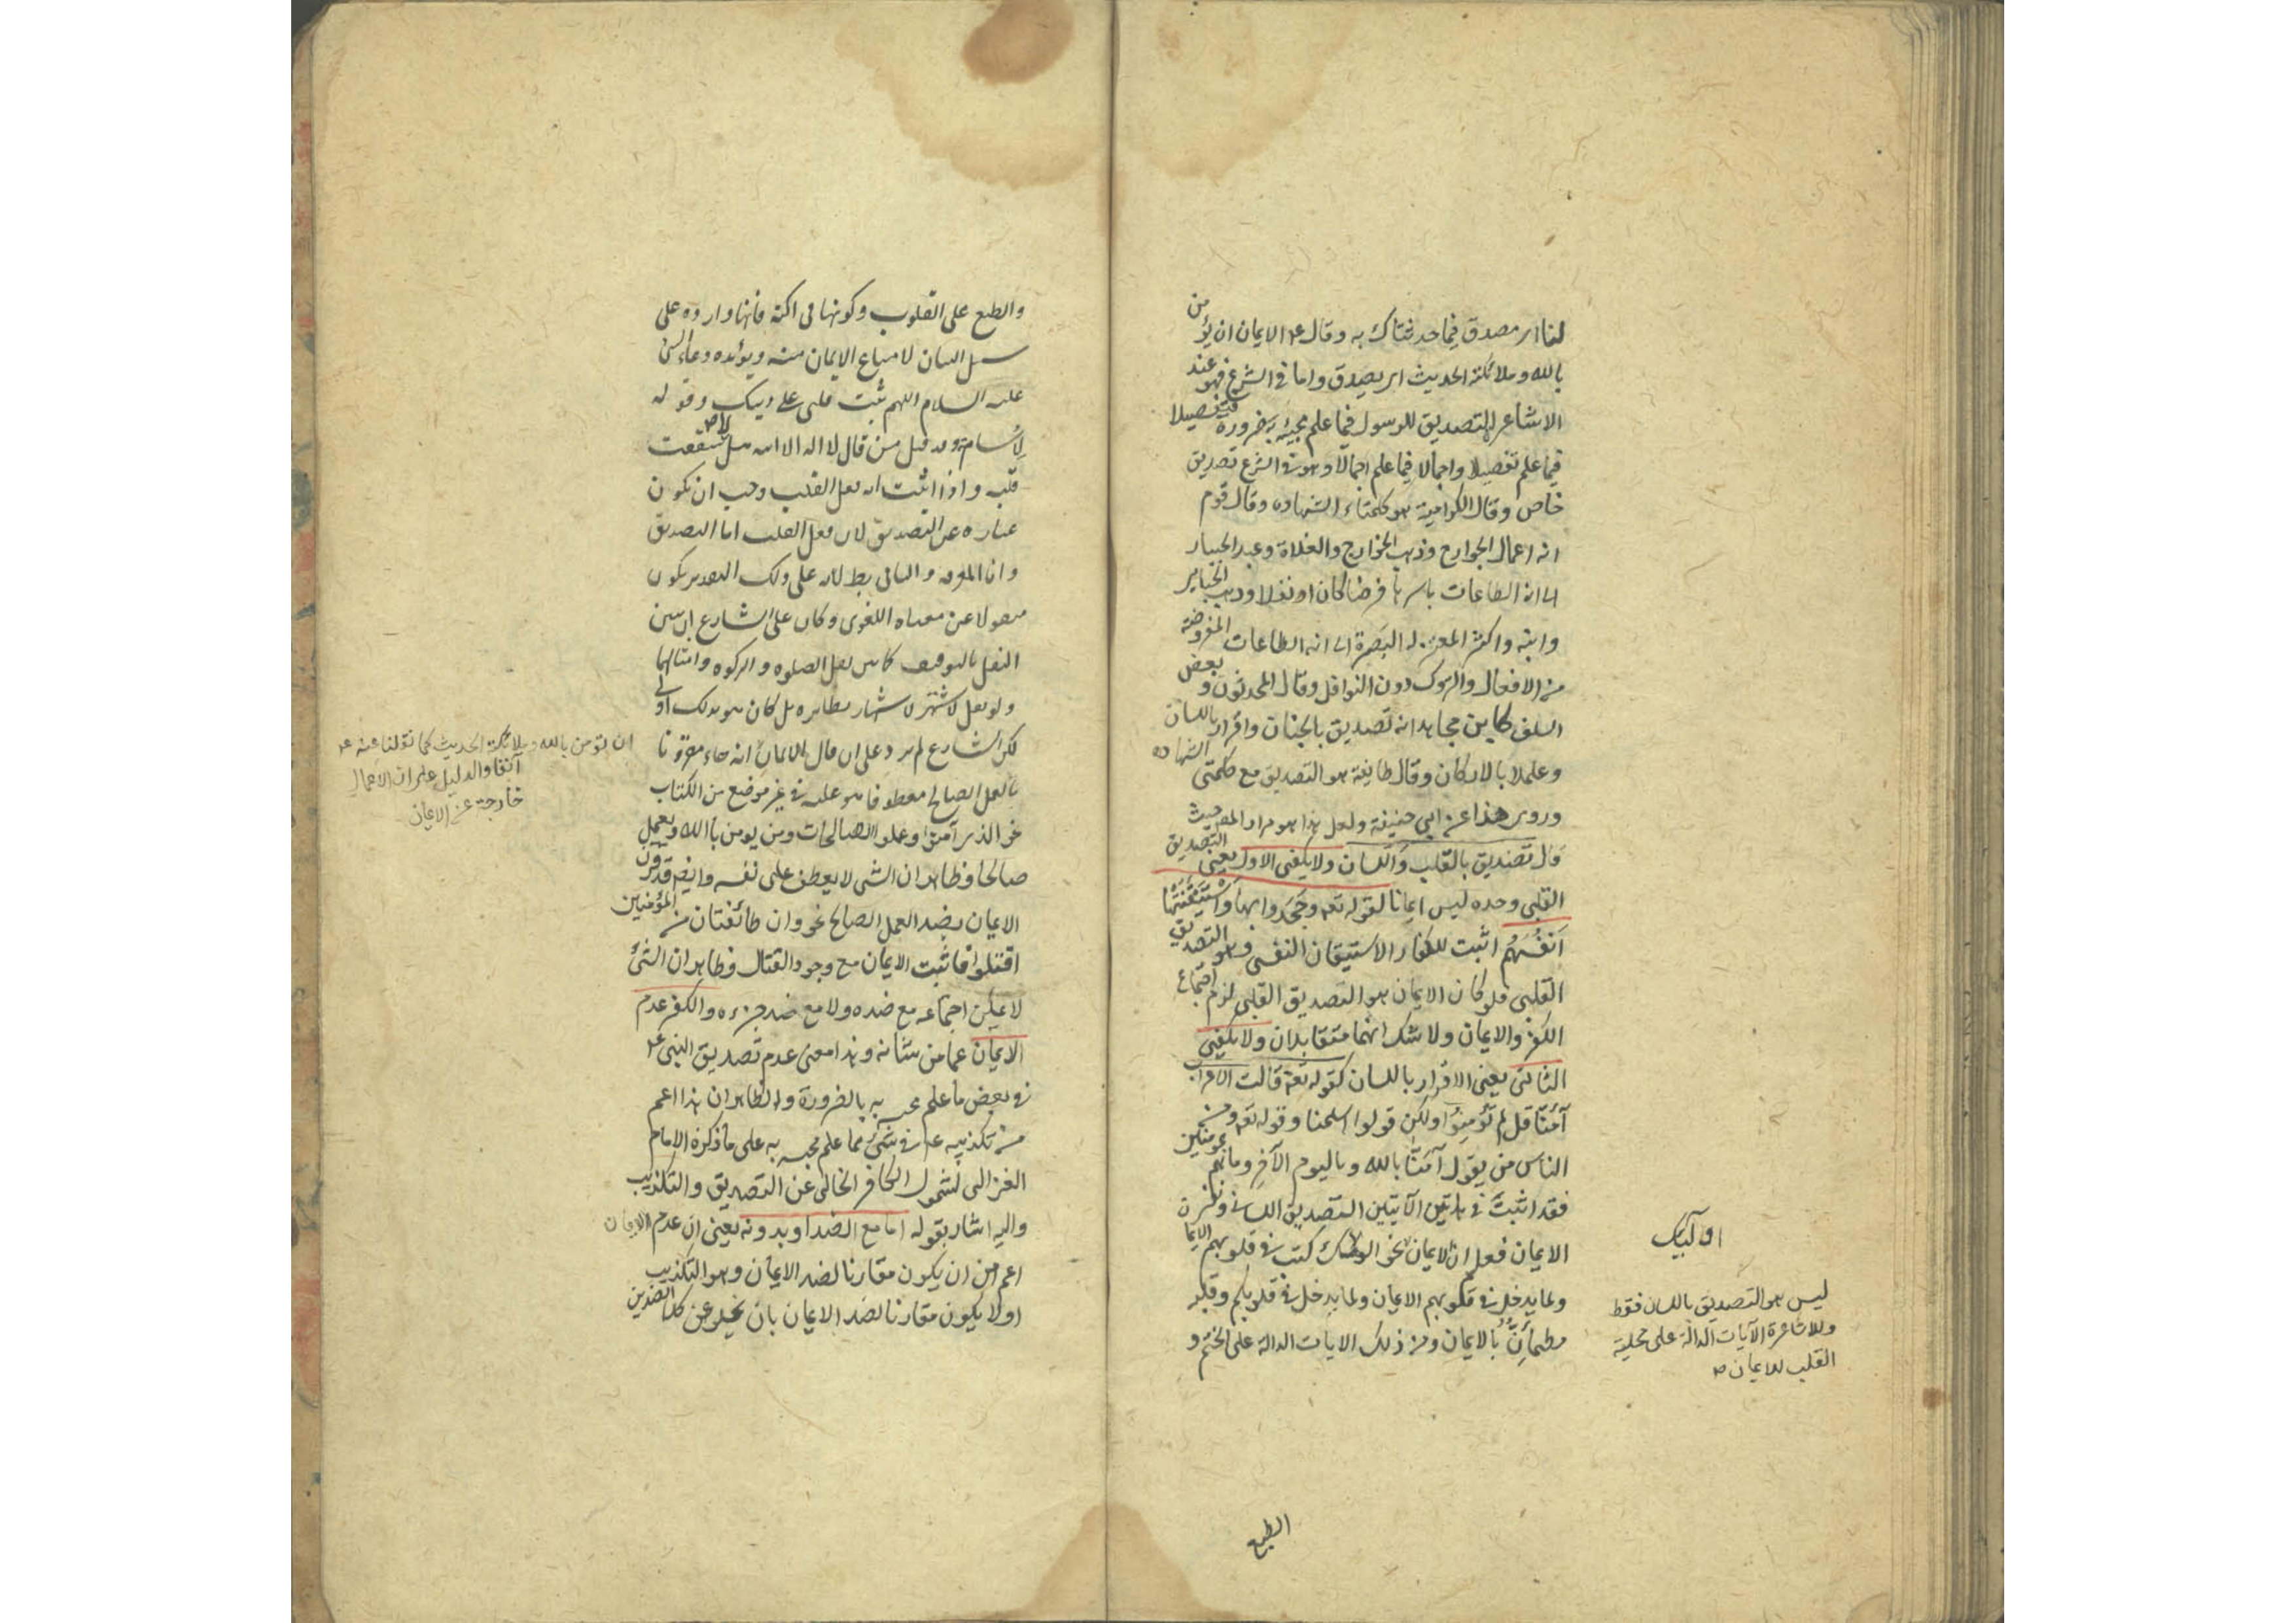 لنا اى مصدق فيما حدثتاك به وقال ع م الايمان ان يؤمن
بالله وملائكته الحديث اى يصدق واما فى الشرع فهو عند
الاشاعرة التصديق للرسول فيما علم مجيئه به ضرورة فتفصيلا
فيما علم تفصيلا واجمالا فيما علم اجمالا وهو فى الشرع تصديق
خاص وقال الكرامية هو كلمتاء الشهاده وقال قوم
انه اعمال الجوارح وذهب الخوارج والغلاة وعبد الجبار
الى انه الطاعات باسرها فرضا كان او نفلا وذهب الجبايى
وابنه واكثر المعتزله البصرة الى انه الطاعات المفروضة
من الافعال والتروك دون النوافل وقال المحدثون وبعض
السلف كابن مجاهد انه تصديق بالجنان واقرار باللسان
وعملا بالاركان وقال طايفة هو التصديق مع كلمتى الشهاده
وروى هذا عن ابى حنيفة ولعل هذا هو مراد المصـ حيث
قال تصديق بالقلب واللسان ولا يكفى الاول يعنى التصديق
القلبى وحده ليس ايمانا لقوله تعـ وجحدوا بها واستيقنتها
انفسهم اثبت للكفار الاستيقان النفسى وهو التصديق
القلبى فلو كان الايمان هو التصديق القلبى لزم اجتماع
الكفر والايمان ولا شك انهما متقابلان ولا يكفى
الثانى يعنى الاقرار باللسان كقوله تعـ قالت الاعراب
آمنا قل لم تؤمنوا ولكن قولوا اسلمنا وقوله تعـ ومن
الناس من يقول آمنا بالله وباليوم الآخر وما هم بمؤمنين
فقد اثبت فى هاتين الآيتين التصديق اللسانى ونفى
الايمان فعلم ان الايمان نحو اولئك كتب فى قلوبهم الايما
ولما يدخل فى قلوبهم الايمان ولما يدخل فى قلوبكم وقلبه
مطمأن بالايمان ومن ذلك الايات الدالة على الختم و
اولئك
ليس هو التصديق باللسان فقط
وللاشاعرة الآيات الدالة على محلية
القلب للايمان
الطبع
والطبع على القلوب وكونها فى اكنة فانها وارده على
سبيل البيان لامتناع الايمان منه ويؤيده دعاء النبى
عليه السلام اللهم ثبت قلبى على دينك وقوله
لاسامة وقد قتل من قال لا اله الا الله هل شققت
قلبه واذا ثبت انه فعل القلب وجب ان يكون
عباره عن التصديق لان فعل القلب اما التصديق
واما المعرفه والثانى بط لانه على ذلك التقدير يكون
منقولا عن معناه اللغوى وكان على الشارع ان يبين
النقل بالتوقيف كما بين نقل الصلوه والزكوه وامثالهما
ولو نقل لاشتهر اشتهار نظايره بل كان هو بذلك اولى
لكن الشارع لم يزد على ان قال الايمان انه جاء مقرونا
بالعمل الصالح معطوفا هو عليه فى غير موضع من الكتاب
نحو الذين آمنوا وعملوا الصالحات ومن يومن بالله ويعمل
صالحا وظاهر ان الشى لا يعطف على نفسه وايضا قد قرن
الايمان بضد العمل الصالح نحو وان طائفتان من المؤمنين
اقتتلوا فاثبت الايمان مع وجود القتال وظاهر ان الشئ
لا يمكن اجتماعه مع ضده ولا مع ضد جزءه والكفر عدم
الايمان عما من شانه وهذا معنى عدم تصديق النبى ع م
فى بعض ما علم مجيئه به بالضرورة والظاهر ان هذا اعم
من تكذيبه ع م فى شئ مما علم مجيئه به على ما ذكره الامام
الغزالى لشمول الكافر الخالى عن التصديق والتكذيب
واليه اشار بقوله اما مع الضد او بدونه يعنى ان عدم الايمان
اعم من ان يكون مقارنا لضد الايمان وهو التكذيب
اولا يكون مقارنا لضد الايمان بان يخلو عن كلا الضدين
ان تؤمن بالله وملائكته الحديث كما نقلنا عنه ع م
آنفا والدليل على ان الاعمال
خارجة عن الايمان